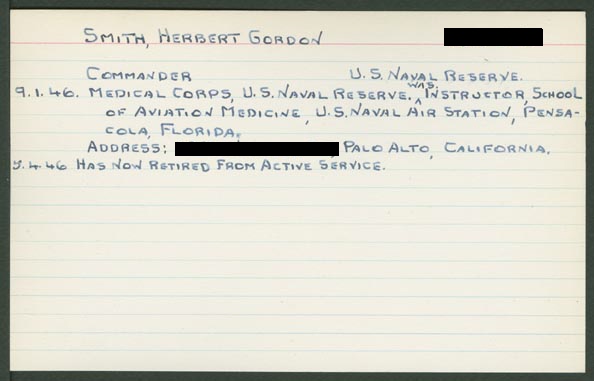 SMITH, HERBERT GORDON
COMMANDER U.S. NAVAL RESERVE.
9.1.46. MEDICAL CORPS, U.S. NAVAL RESERVE. WAS INSTRUCTOR, SCHOOL
OF AVIATION MEDICINE, U.S. NAVAL AIR STATION, PENSA-
COLA, FLORIDA.
ADDRESS: , PALO ALTO, CALIFORNIA.
9.4.46 HAS NOW RETIRED FROM ACTIVE SERVICE.